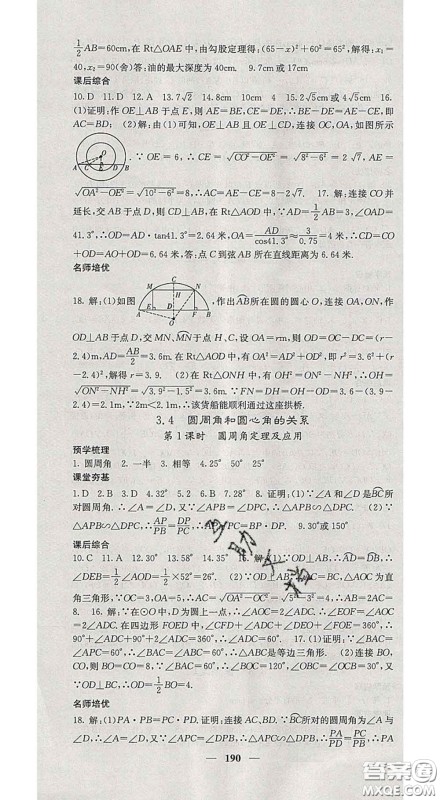 1/2AB=60cm,在Rt△OAE中,由勾股定理得:(65-x)²+60²=65²,解得:x₁=
40,x₂=90(舍)答:油的最大深度为40cm. 9.7cm或17cm
课后综合
10.D 11.D 12.A 13.7√2 14.8cm 10cm 4 15.2√5cm或4√5cm 16.
(1)证明:作OE⊥AB于点E,则AE=BE,CE=DE,∴BE-DE=AE-CE,即
AC=BD; (2)解:由(1)可知,OE⊥AB且OE⊥CD,连接OC,OA,如图所示
O A C E D B .∵OE=6,∴CE=√(OC²-OE²)=√(8²-6²)=2√7,AE=
√(OA²-OE²)=√(10²-6²)=8,∴AC=AE-CE=8-2√7. 17.解:连接CO并
延长,交AB于点D,则CD⊥AB,在Rt△AOD中,AD=1/2AB=3,∠OAD=
41.3°,∴OD=AD·tan41.3°=2.64米,OA=AD/cos41.3°≈3/0.75=4米,∴CD=CO
+OD=AO+OD=6.64米,答:点C到弦AB所在直线距离为6.64米.
名师培优
18.解:(1)如图 C M H N A E D F B O ,作出AB所在圆的圆心O,连接OA,ON,作
OD⊥AB于点D,交MN、MN于点H、C,设OA=rm,则OD=OC-DC=(r-
2.4)m,AD=AB/2=3.6m.在Rt△AOD中,OA²=AD²+OD²,即r²=3.6²+(r-
2.4)²,解得r=3.9. (2)在Rt△ONH中,有OH²=ON²-NH²,∴OH=
√(ON²-NH²)=√(3.9²-1.5²)=3.6m.∵FN=DH=OH-OD=3.6-(3.9-
2.4)=2.1m,∵2m<2.1m,∴该货船能顺利通过这座拱桥.
3.4 圆周角和圆心角的关系
第1课时 圆周角定理及应用
预学梳理
1.圆周角 2.一半 3.相等 4.25° 50° 25°
课堂夯基
1.D 2.B 3.D 4.32° 5.2 6.B 7.B 8.证明:(1)∵∠A和∠D是BC所
对圆周角.∴∠A=∠D,又∵∠APB=∠DPC,∴△APB∽△DPC; (2)∵
△APB∽△DPC,∴AP/DP=PB/PC,∴AP·PC=BP·DP. 9.30°或150°
课后综合
10.C 11.A 12.30° 13.58° 14.35° 15. 16.解:(1)∵OD⊥AB,∴AD=DB,∴
∠DEB=1/2∠AOD=1/2×52°=26°. (2)∵OD⊥AB,∴AC=BC,△AOC为直
角三角形,∵OC=3,OA=5,∴AC=√(OA²-OC²)=√(5²-3²)=4,∴AB=2AC=
8. 16.解:∵在⊙O中,D为圆上一点,∴∠AOC=2∠ADC.∴∠EOF=∠AOC
=2∠ADC.在四边形FOED中,∠CFD+∠ADC+∠DEO+∠FOE=360°,∴
90°+∠ADC+90°+2∠ADC=360°,∴∠ADC=60°. 17.(1)证明:∵∠BAC=
∠APC=60°,又∵∠APC=∠ABC,∴△ABC是等边三角形. (2)连接BO,
CO,则BO=CO,∵∠BAC=60°,∴∠BOC=120°,∴∠OBC=∠OCB=30°,又
∵OD⊥BC,∴OD=1/2BO=4.
名师培优
18.解:(1)PA·PB=PC·PD.证明:连接AC、BD.∵BC所对的圆周角为∠A与
∠D,∴∠A=∠D,又∵∠APC=∠DPB,∴△APC∽△DPB.∴PA/PD=PC/PB,∴PA
190
答案圈
MXQE.COM